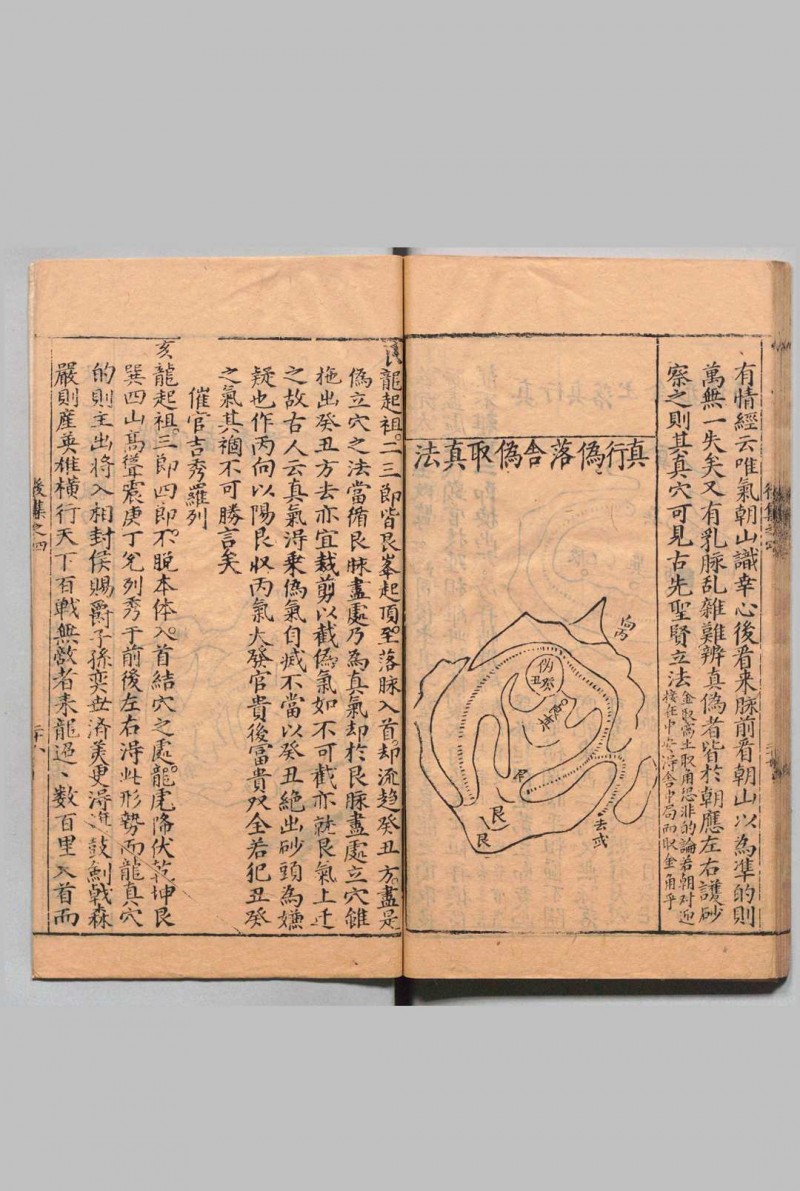 有情經云唯氣朝山識幸心後看来脉前看朝山以為凖的則
萬無一失矣又有乳脉乱雜難辨真偽者皆於朝應左右護砂
察之則其真穴可見古先聖賢立法
金取窩土取角忌非的論若朝对迎
接在中安得舍中局而取金角乎
真行偽落舍偽取真法
伪
丑癸
艮
艮
去武
龍起祖二三郎皆艮峯起頂至落脉入首却流趋癸丑方盡是
偽立穴之法當循艮脉盡處乃為真氣却於艮脉盡處立穴雖
拖出癸丑方去亦宜裁剪以截偽氣如不可截亦就艮氣上迁
之故古人云真氣淂乗偽氣自㓕不當以癸丑絶出砂頭為嫌
疑也作丙向以陽艮収丙氣大發官貴後富貴双全若犯丑癸
之氣其禍不可勝言矣
催官吉秀羅列
亥龍起祖三郎四郎不脱本体入首結穴之處龍虎降伏乾坤艮
巽四山髙聳震庚丁兊列秀于前後左右淂此形勢而龍真穴
的則主出将入相封侯賜爵子孫奕世済美更淂旗鼓劍戟森
嚴則産英雄横行天下百戰無敵者来龍迢〻数百里入首而
後集之四